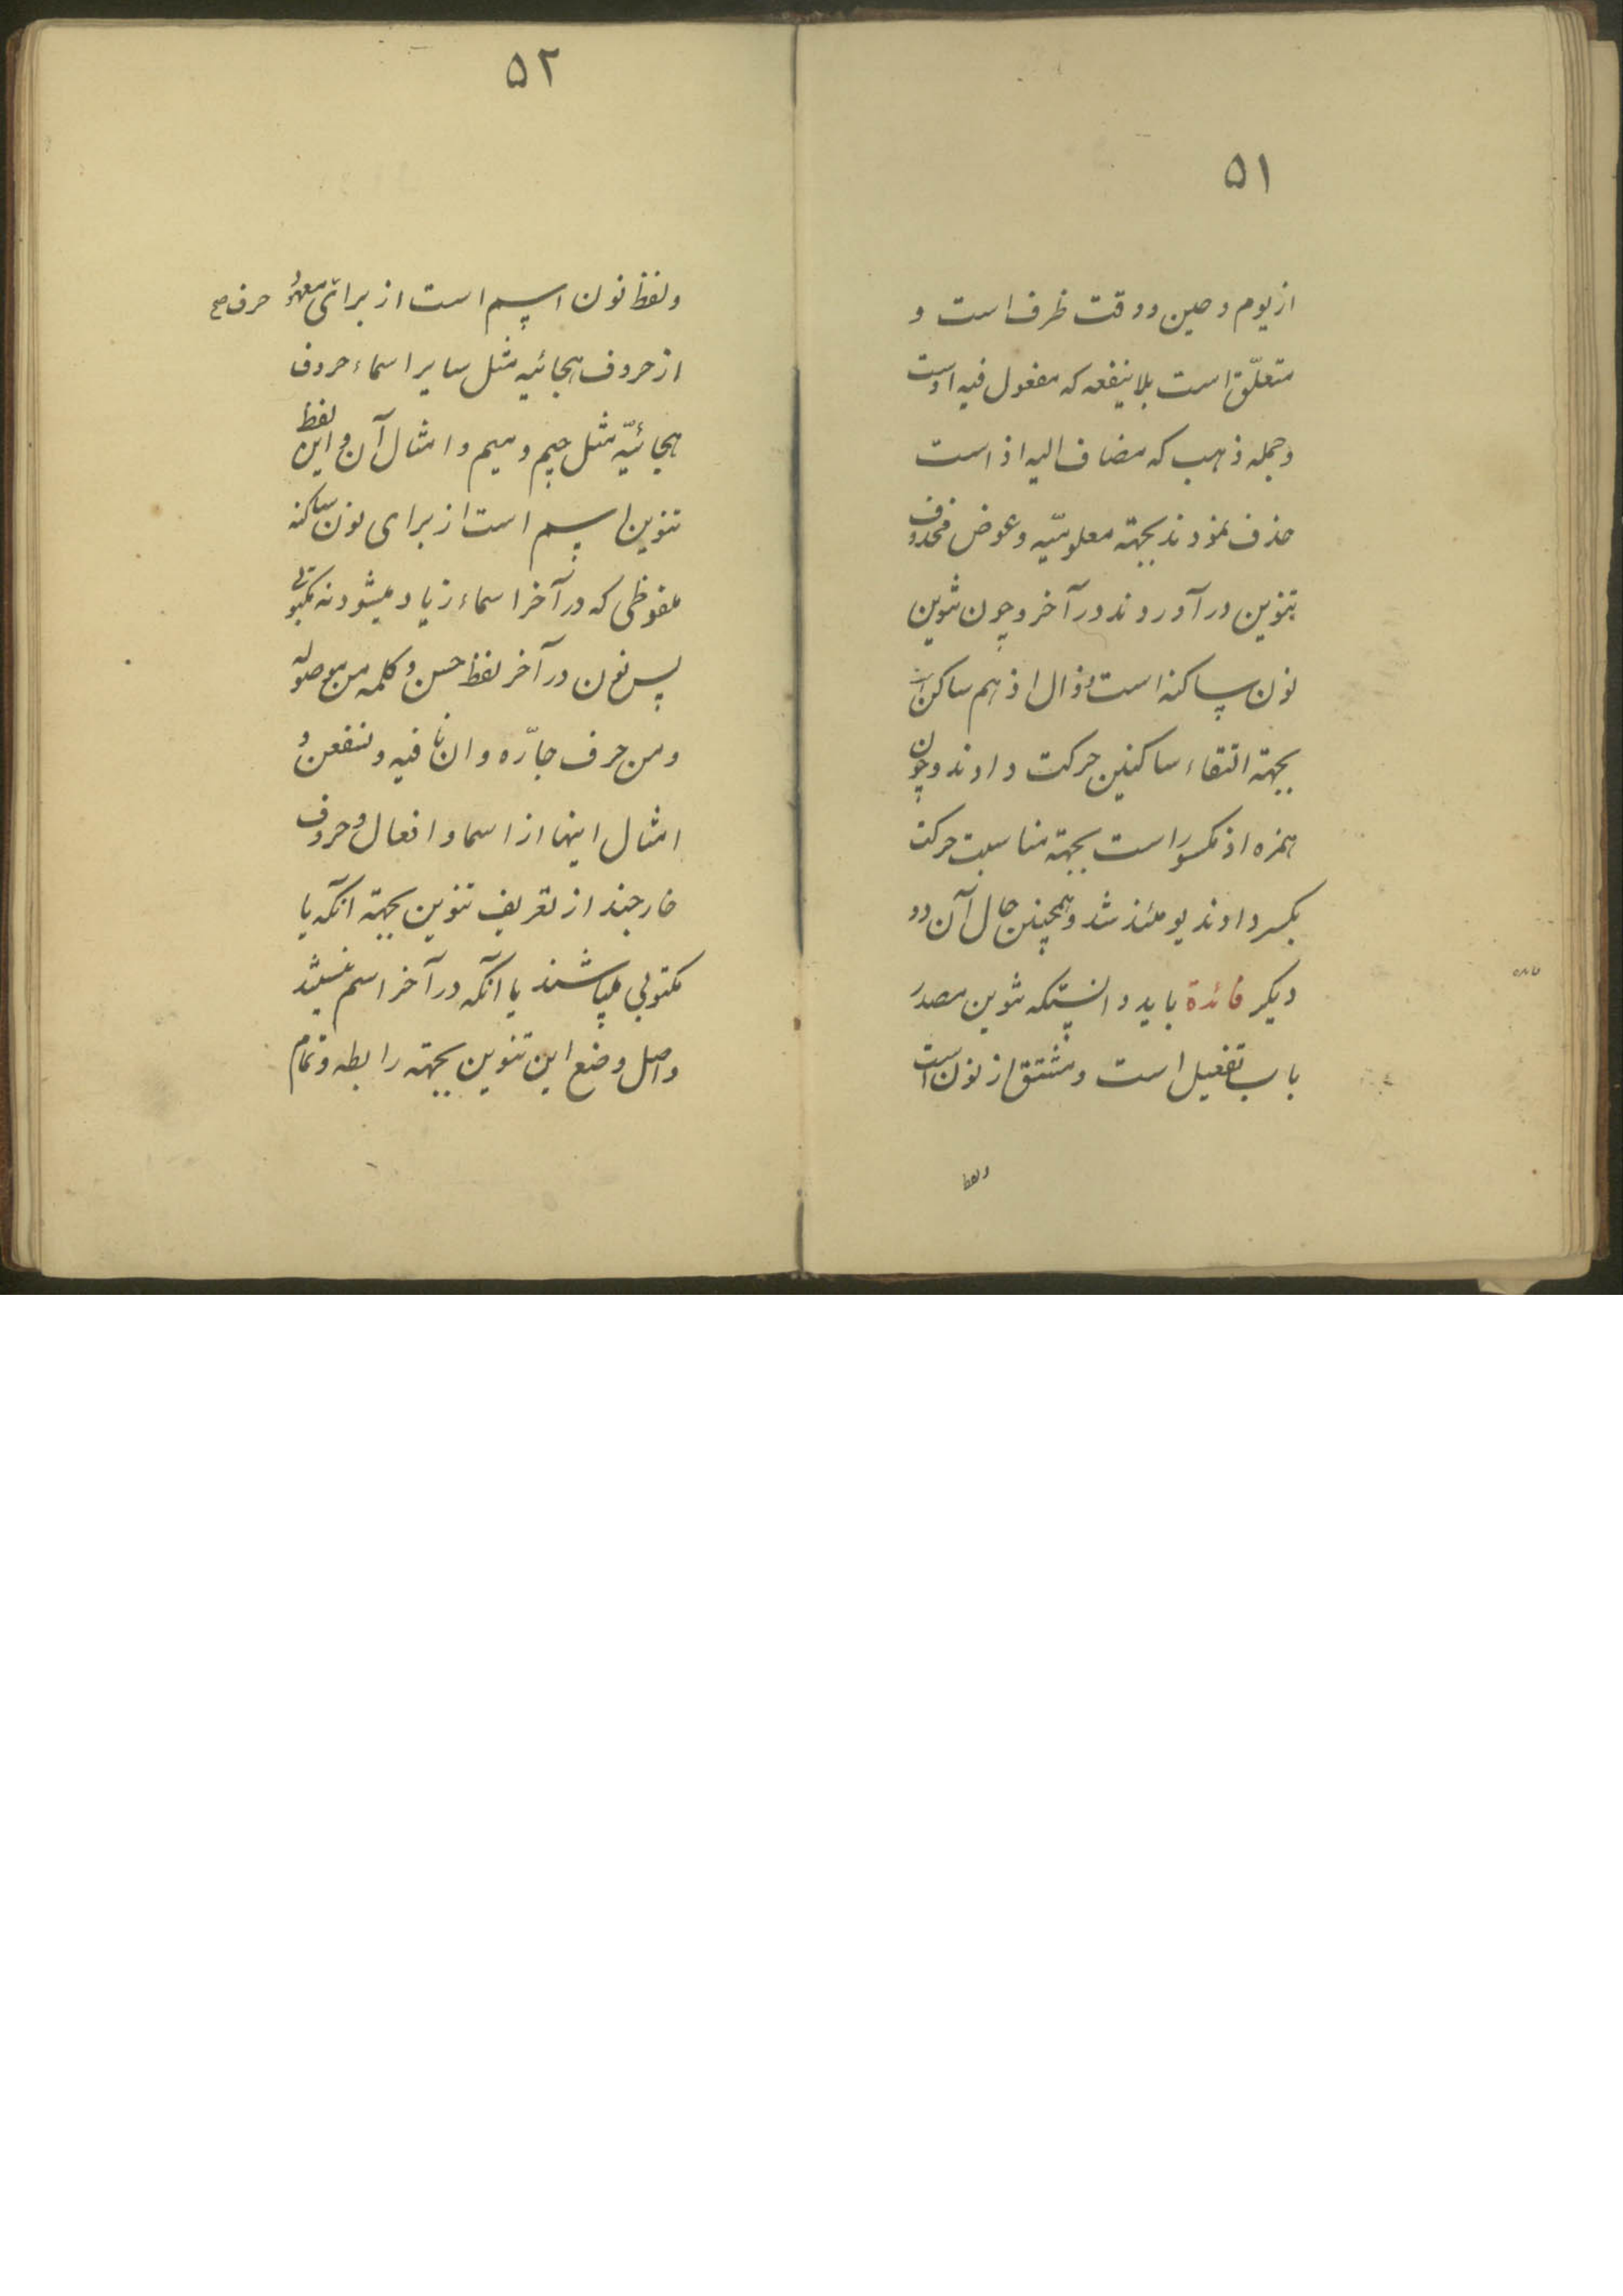 ۵۱
از یوم و حین و وقت ظرف است و
متعلّق است بلا ینفعه که مفعول فیه اوست
و جمله ذهب که مضاف الیه اذ است
حذف نمودند بجهته معلومیّه و عوض محذوف
تنوین در آوردند در آخر و چون تنوین
نون ساکنه است و ذال اذ هم ساکن است
بجهته التقاء ساکنین حرکت دادند و چون
همزه اذ مکسور است بجهته مناسبت حرکت
بکسر دادند یومئذ شد و همچنین حال آن دو
دیکر فائدة باید دانستکه تنوین مصدر
باب تفعیل است و مشتق از نون است
و لفظ
۵۲
و لفظ نون اسم است از برای معهود حرف صح
از حروف هجائیه مثل سایر اسماء حروف
هجائیّه مثل جیم و میم و امثال آن و این لفظ
تنوین اسم است از برای نون ساکنه
ملفوظی که در آخر اسماء زیاد میشود نه مکتوبی
پس نون در آخر لفظ حسن و کلمه من موصوله
و من حرف جارّه و ان نافیه و لنفعن و
امثال اینها از اسما و افعال و حروف
خارجند از تعریف تنوین بجهته آنکه یا
مکتوبی میباشند یا آنکه در آخر اسم نیستند
و اصل وضع این تنوین بجهته رابطه و تمام